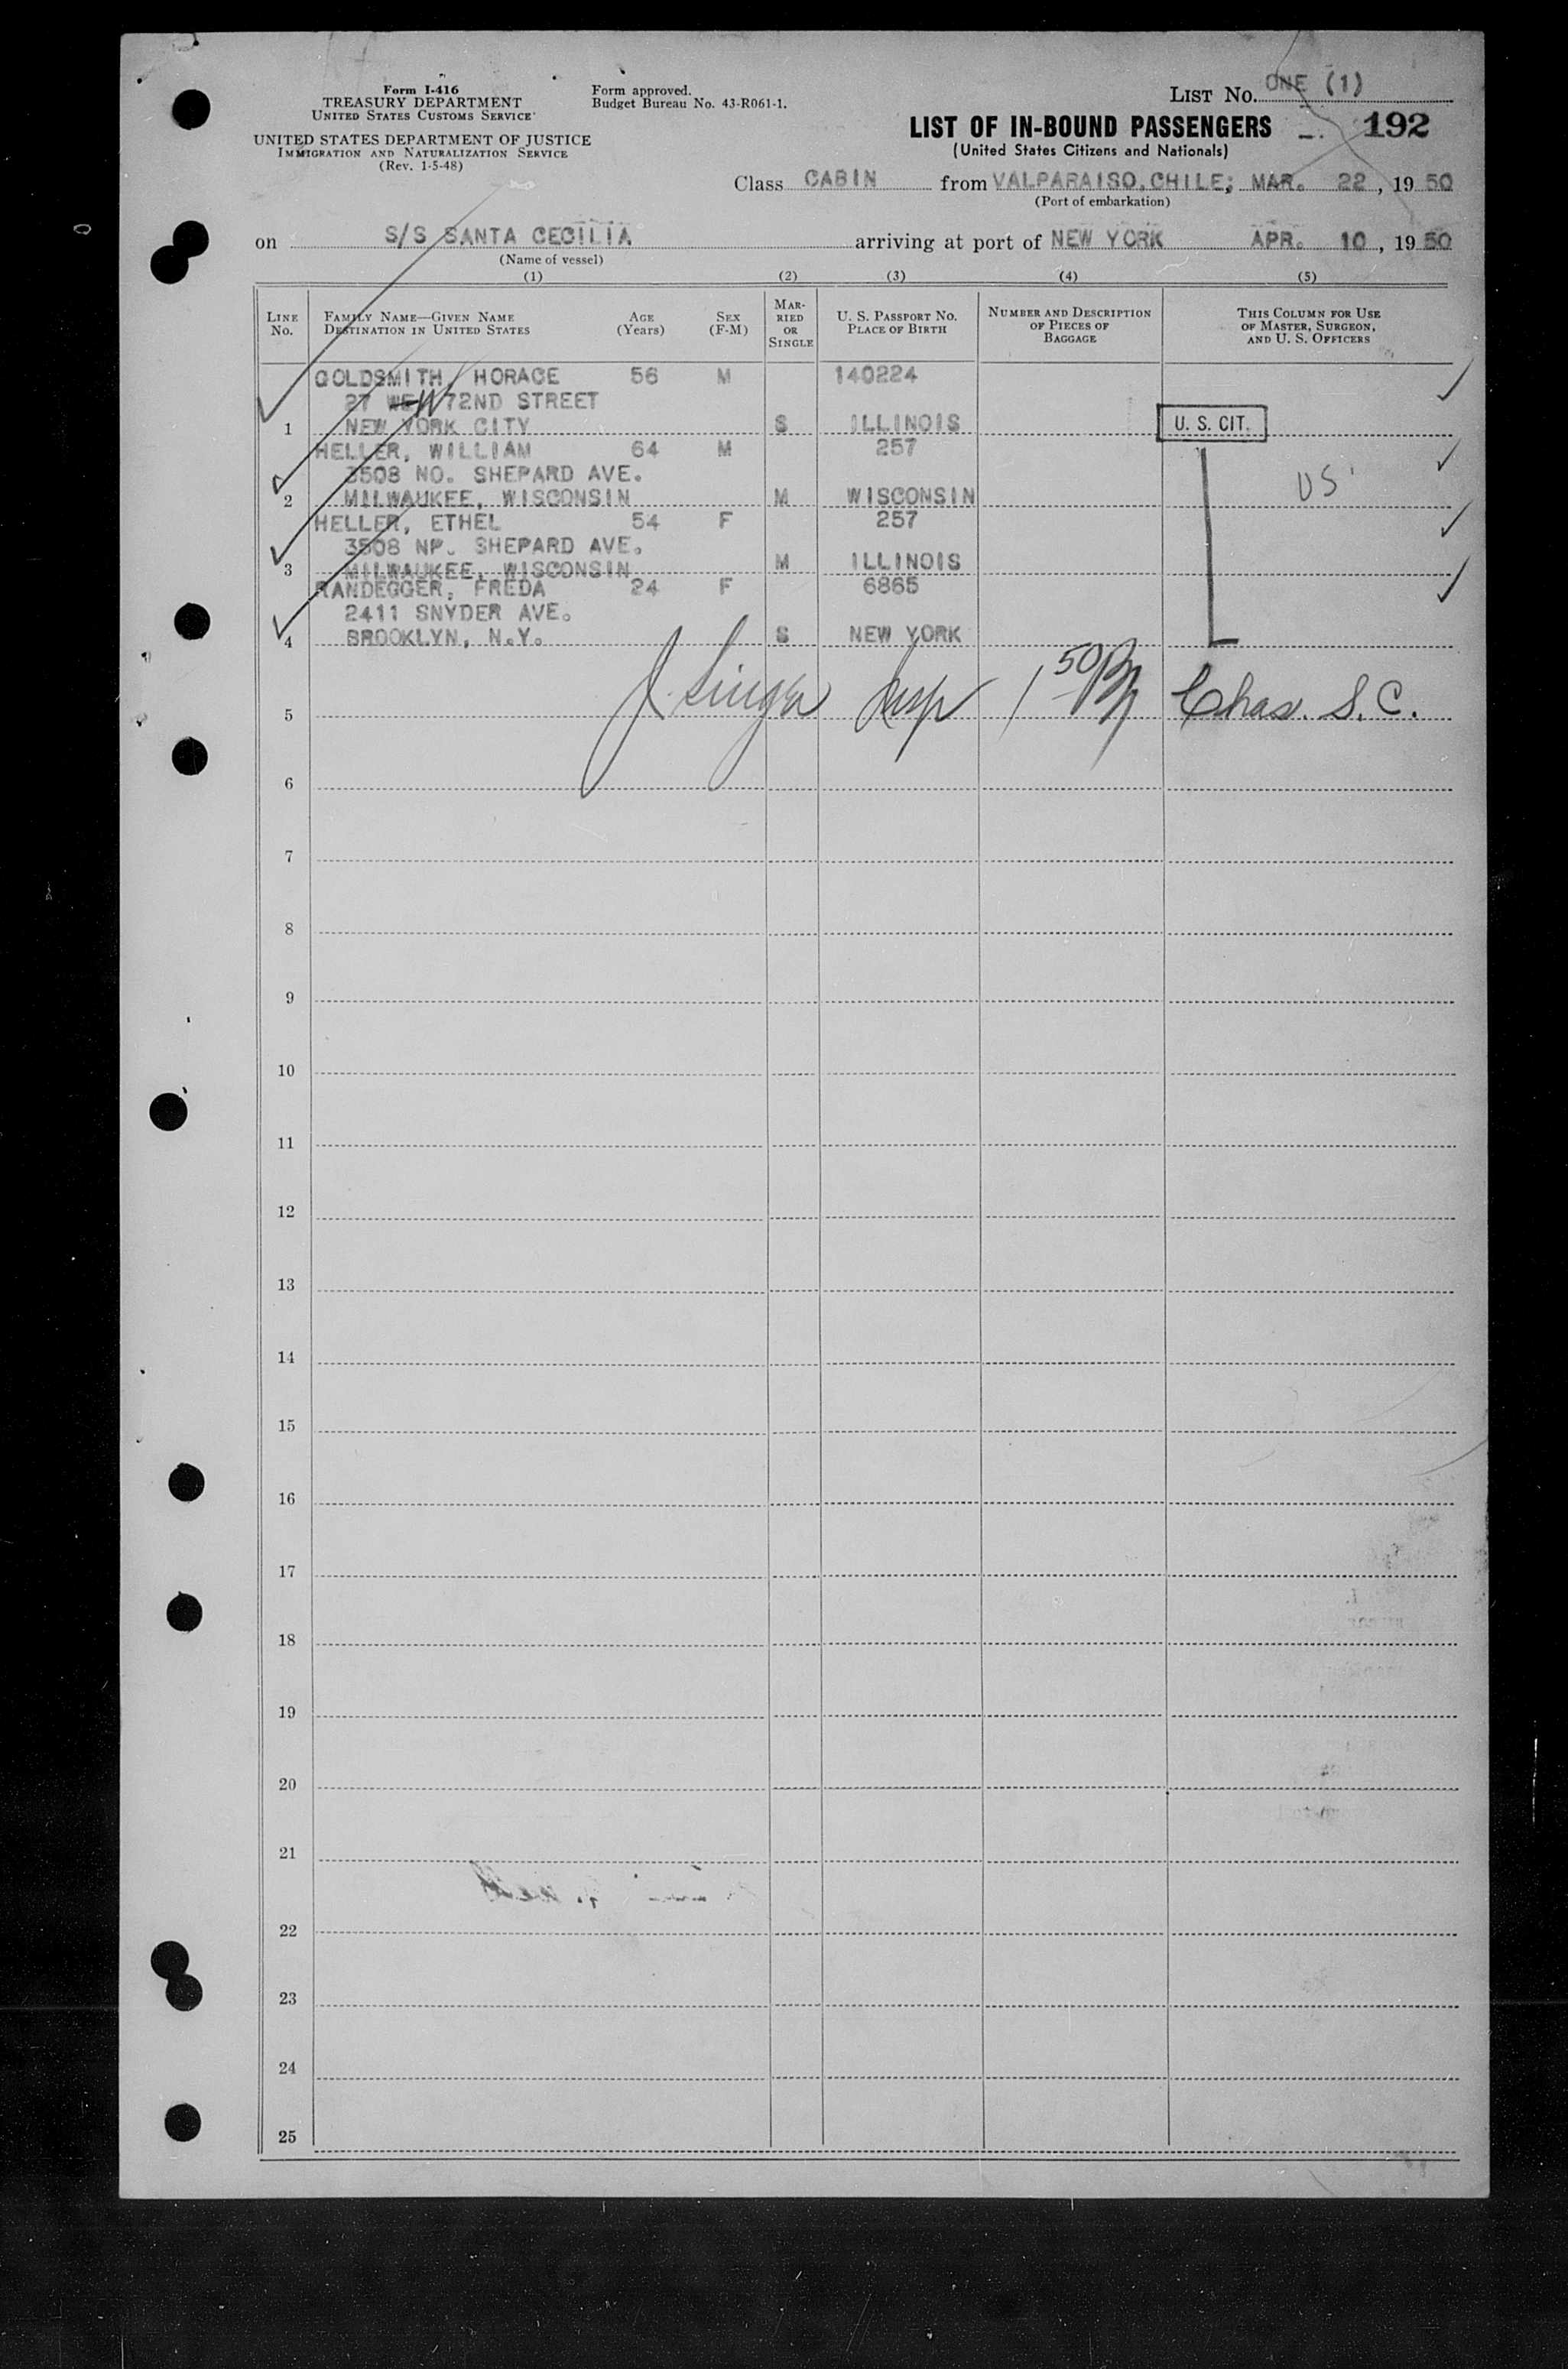 Form I-416
TREASURY DEPARTMENT
UNITED STATES CUSTOMS SERVICE
UNITED STATES DEPARTMENT OF JUSTICE
IMMIGRATION AND NATURALIZATION SERVICE
(Rev. 1-5-48)
Form approved.
Budget Bureau No. 43-R061-1.
LIST NO. ONE (1)
LIST OF IN-BOUND PASSENGERS 192
(United States Citizens and Nationals)
Class CABIN from VALPARAISO, CHILE; MAR. 22, 1950
(Port of embarkation)
on S/S SANTA CECILIA arriving at port of NEW YORK APR. 10, 1950
(Name of vessel)
(1) (2) (3) (4) (5)
LINE No. FAMILY NAME—GIVEN NAME DESTINATION IN UNITED STATES AGE (Years) SEX (F-M) MARRIED OR SINGLE U. S. PASSPORT NO. PLACE OF BIRTH NUMBER AND DESCRIPTION OF PIECES OF BAGGAGE THIS COLUMN FOR USE OF MASTER, SURGEON, AND U. S. OFFICERS
GOLDSMITH, HORACE 56 M 140224
27 W 72ND STREET
1 NEW YORK CITY S ILLINOIS U. S. CIT.
HELLER, WILLIAM 64 M 257
3508 NO. SHEPARD AVE. US
2 MILWAUKEE, WISCONSIN M WISCONSIN
HELLER, ETHEL 54 F 257
3508 NP. SHEPARD AVE.
3 MILWAUKEE, WISCONSIN M ILLINOIS
RANDEGGER, FREDA 24 F 6865
2411 SNYDER AVE.
4 BROOKLYN, N.Y. S NEW YORK
5 J Singer Insp 1 50 Chas. S. C.
6
7
8
9
10
11
12
13
14
15
16
17
18
19
20
21
22
23
24
25